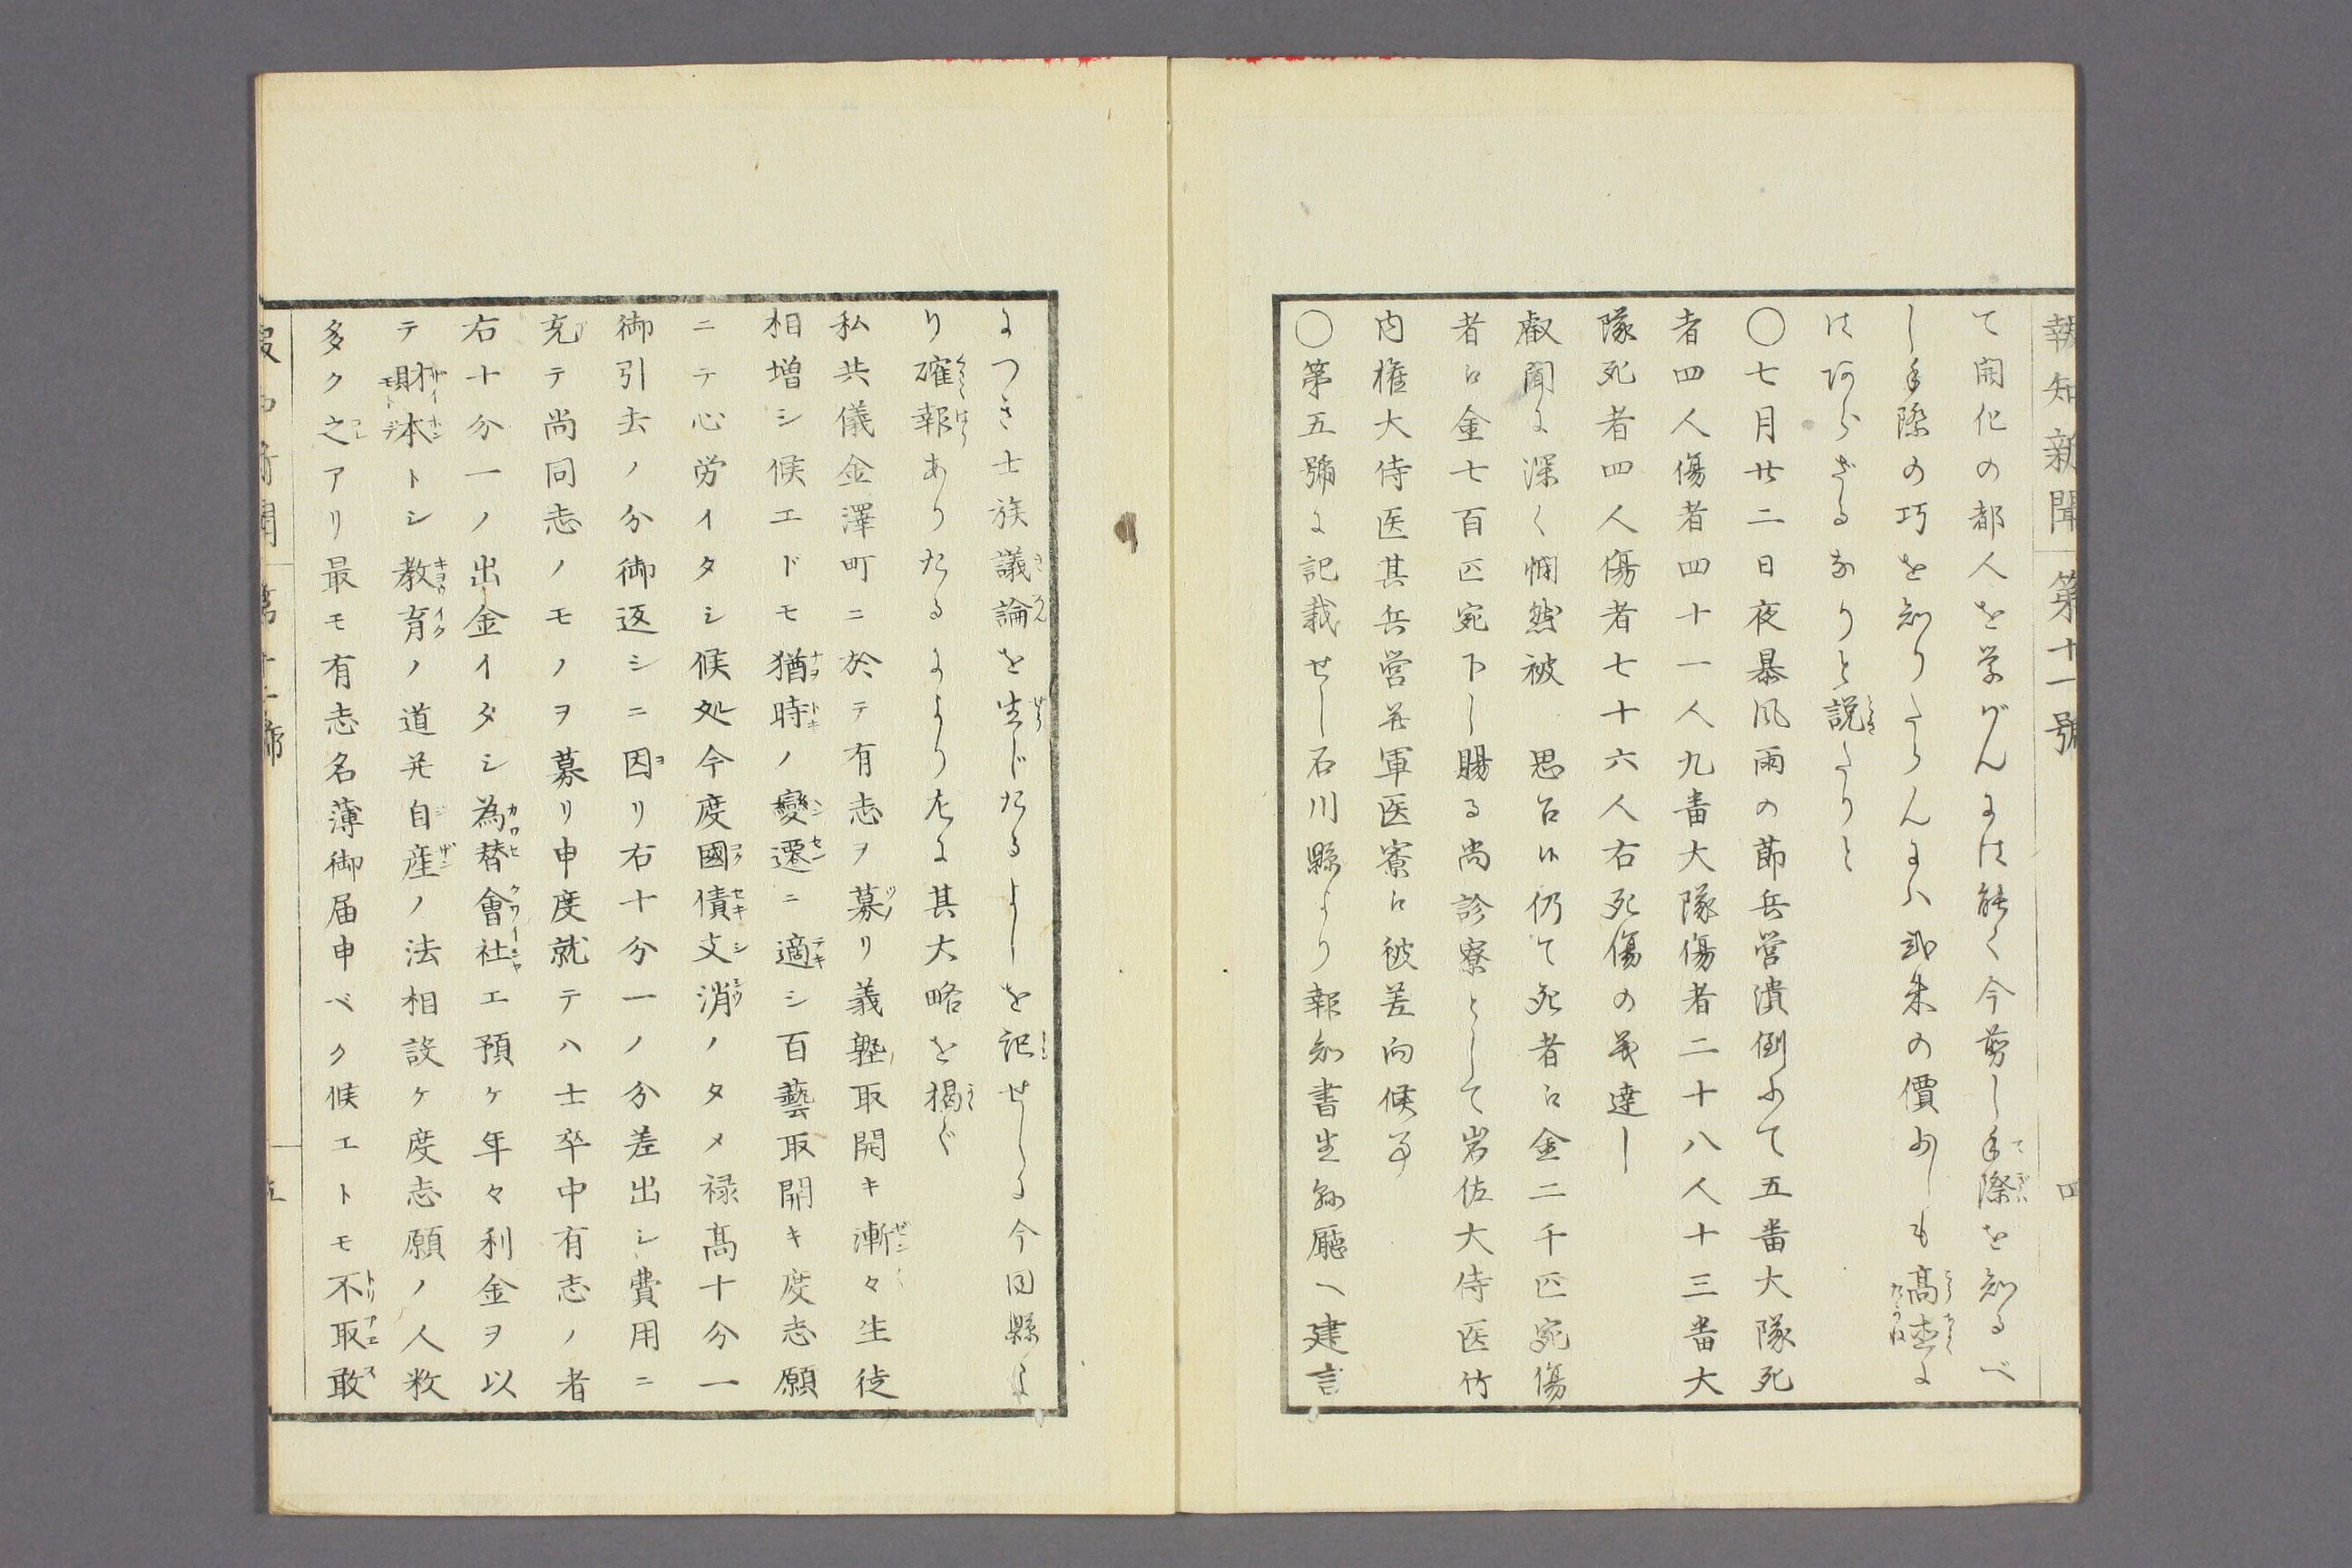 報知新聞 第十一號 四
て開化の都人を学ばんには能く今剪し手際を知るべ
し手際の巧を知りたらんにハ弐朱の價あしも高直に
は阿らざるなりと説たりと
○七月廿二日夜暴風雨の節兵営潰倒ふて五番大隊死
者四人傷者四十一人九番大隊傷者二十八人十三番大
隊死者四人傷者七十六人右死傷の義達し
叡聞に深く憫然被 思召候仍て死者に金二千匹宛傷
者に金七百匹宛下し賜る尚診察として岩佐大侍医竹
内権大侍医其兵営并軍医寮に被差向候事
○第五號に記載せし石川縣より報知書生縣廳へ建言
につき士族議論を生じたるよしを記せしに今回縣よ
り確報ありたるにより左に其大略を掲ぐ
私共儀金澤町ニ於テ有志ヲ募リ義塾取開キ漸々生徒
相増シ候エドモ猶時ノ變遷ニ適シ百藝取開キ度志願
ニテ心労イタシ候処今度國債支消ノタメ禄高十分一
御引去ノ分御返シニ因リ右十分一ノ分差出シ費用ニ
充テ尚同志ノモノヲ募リ申度就テハ士卒中有志ノ者
右十分一ノ出金イダシ為替會社エ預ケ年々利金ヲ以
テ財本トシ教育ノ道并自産ノ法相設ケ度志願ノ人数
多ク之アリ最モ有志名薄御届申ベク候エトモ不取敢